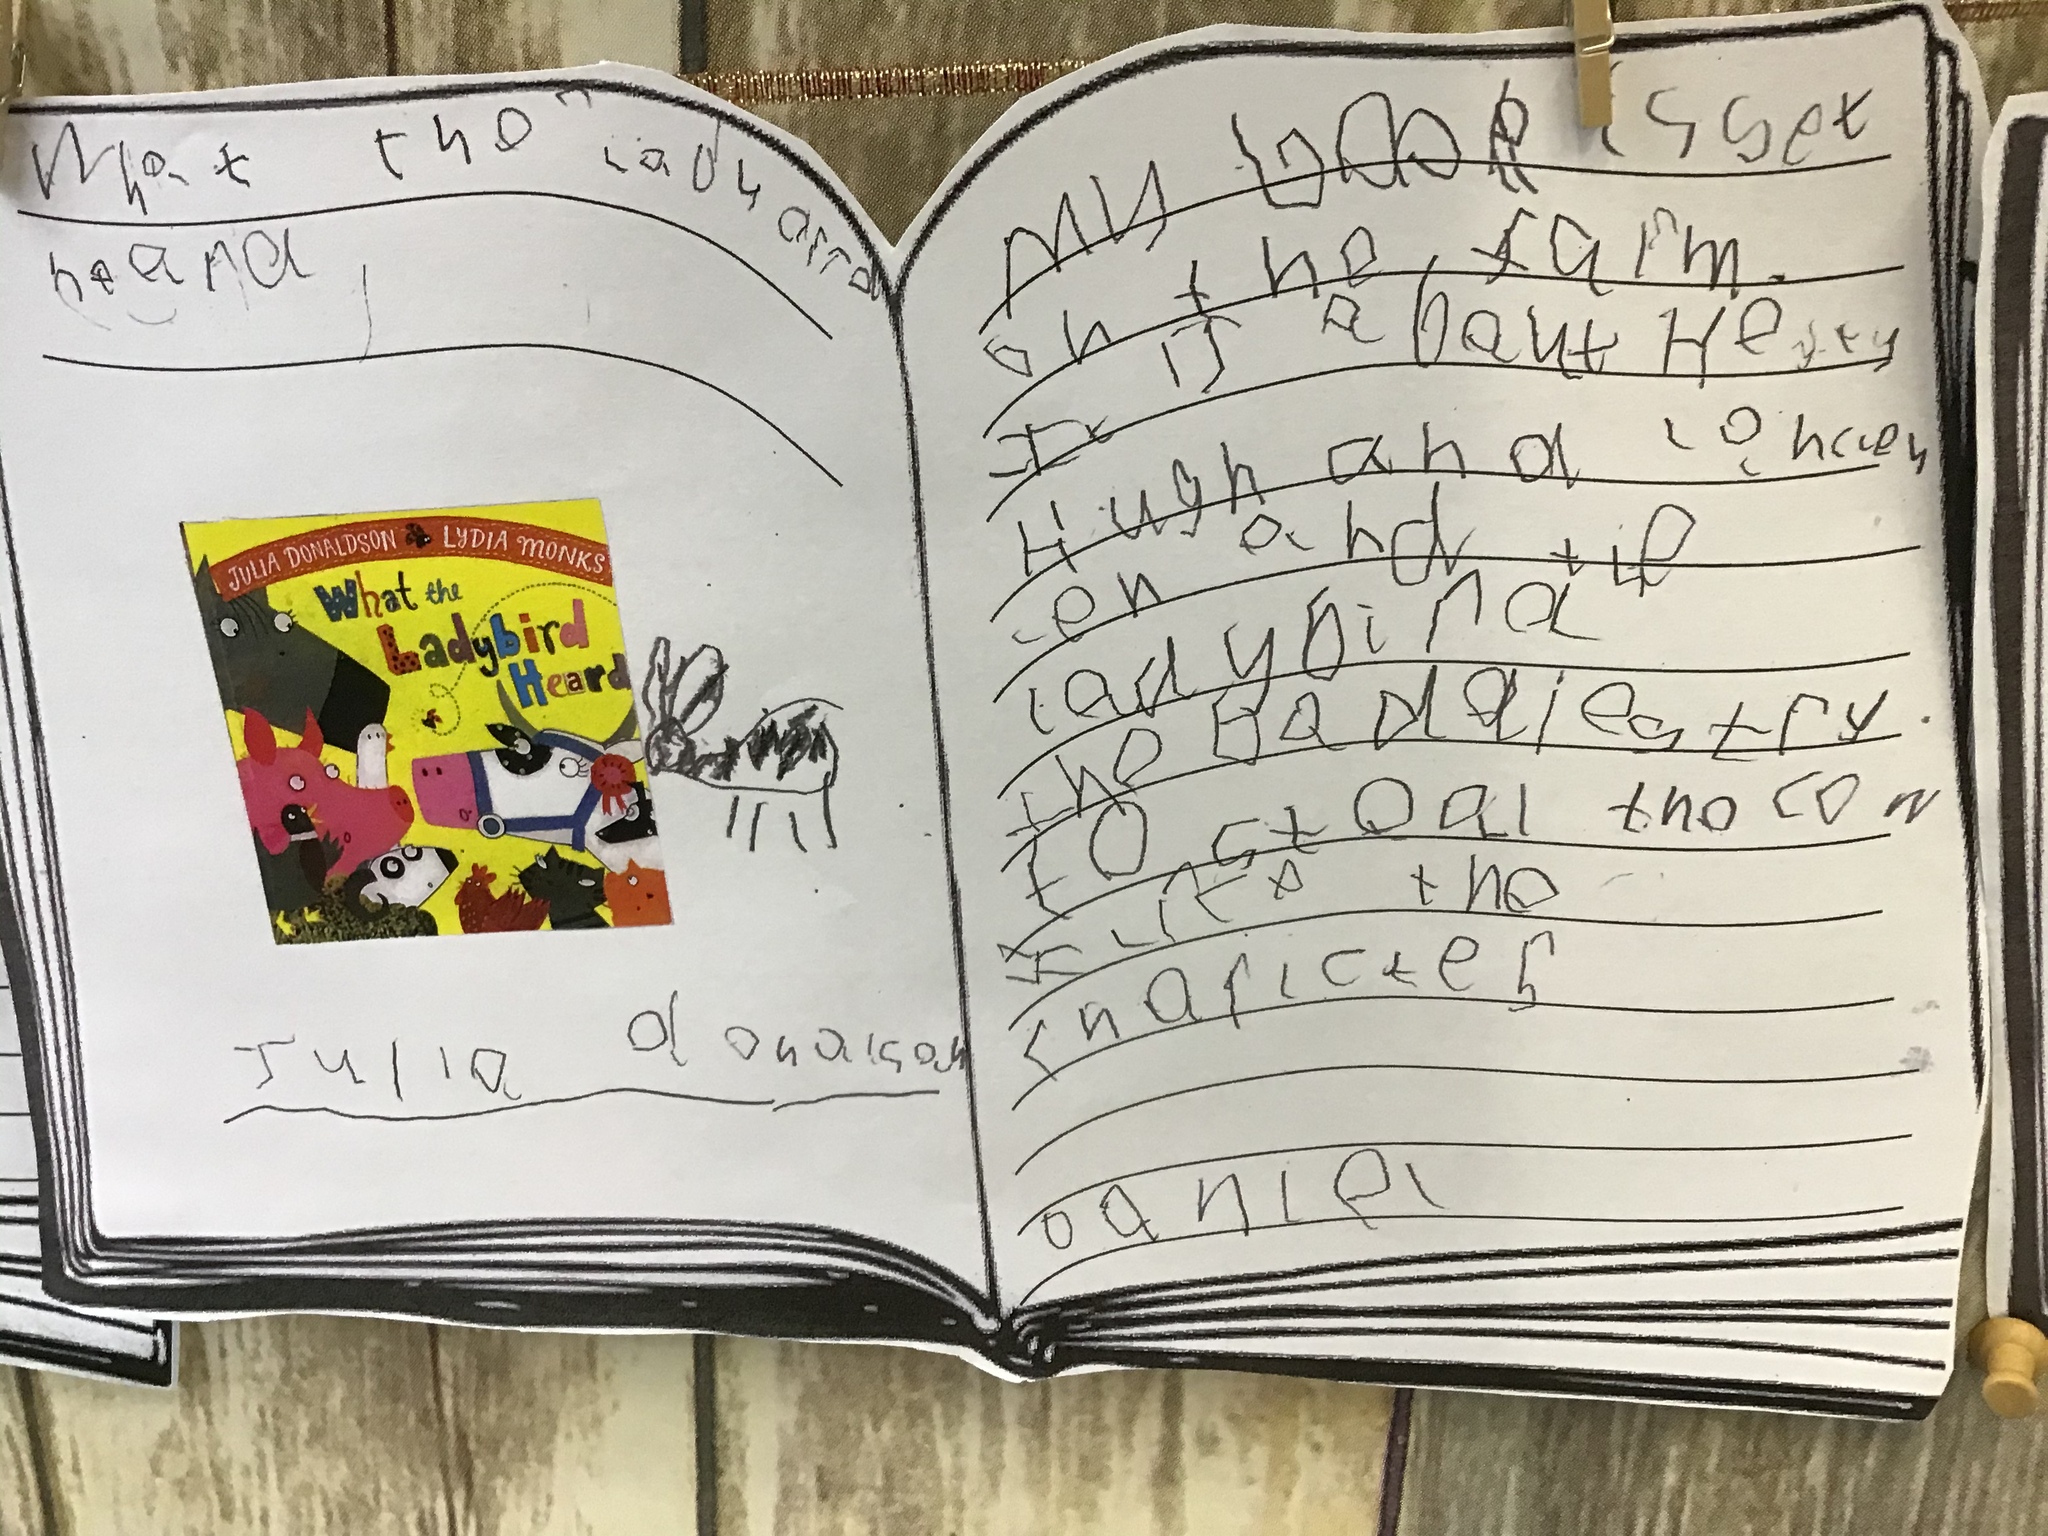 What the
heard
JULIA DONALDSON LYDIA MONKS
What the
Ladybird
Heard
Julia donalson
My book is set
on the farm.
It is about Hefty
Hugh and
len and the
ladybird
the baddies try.
to steal the cow
I like the
Daniel